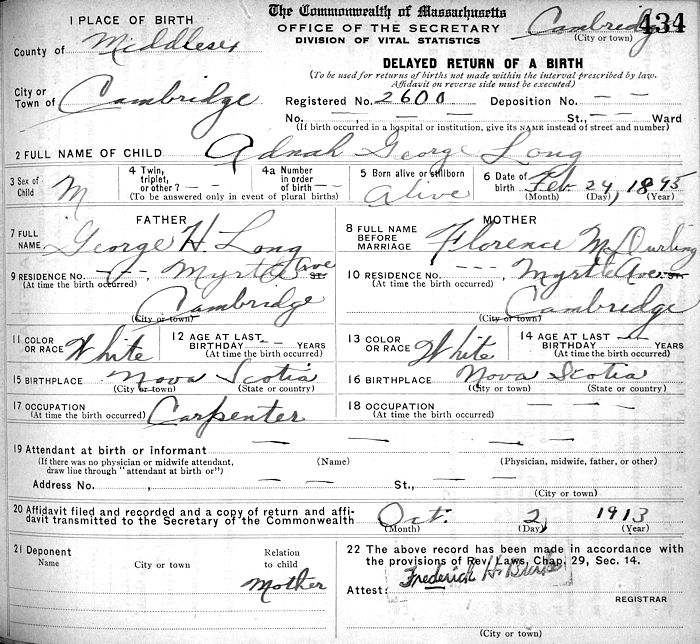 1 PLACE OF BIRTH
County of Middlesex
City or
Town of Cambridge
The Commonwealth of Massachusetts
OFFICE OF THE SECRETARY
DIVISION OF VITAL STATISTICS
Cambridge 434
(City or town)
DELAYED RETURN OF A BIRTH
(To be used for returns of births not made within the interval prescribed by law.
Affidavit on reverse side must be executed)
Registered No. 2600 Deposition No. — —
No. — , — — St., — — Ward
(If birth occurred in a hospital or institution, give its NAME instead of street and number)
2 FULL NAME OF CHILD Adnah George Long
3 Sex of
Child M
4 Twin,
triplet,
or other? — —
4a Number
in order
of birth —
(To be answered only in event of plural births)
5 Born alive or stillborn
Alive
6 Date of
birth Feb 24, 1895
(Month) (Day) (Year)
FATHER
7 FULL
NAME George H. Long
9 RESIDENCE NO. — — , Myrtle Ave ST.
(At time the birth occurred)
Cambridge
(City or town)
11 COLOR
OR RACE White
12 AGE AT LAST
BIRTHDAY — — YEARS
(At time the birth occurred)
15 BIRTHPLACE Nova Scotia
(City or town) (State or country)
17 OCCUPATION
(At time the birth occurred) Carpenter
MOTHER
8 FULL NAME
BEFORE
MARRIAGE Florence M. Durling
10 RESIDENCE NO. — — — , Myrtle Ave. ST.
(At time the birth occurred)
Cambridge
(City or town)
13 COLOR
OR RACE White
14 AGE AT LAST
BIRTHDAY — — YEARS
(At time the birth occurred)
16 BIRTHPLACE Nova Scotia
(City or town) (State or country)
18 OCCUPATION — — —
(At time the birth occurred)
19 Attendant at birth or informant — — — — —
(If there was no physician or midwife attendant,
draw line through "attendant at birth or")
(Name) (Physician, midwife, father, or other)
Address No. , — St., — —
(City or town)
20 Affidavit filed and recorded and a copy of return and affi-
davit transmitted to the Secretary of the Commonwealth Oct. 2, 1913
(Month) (Day) (Year)
21 Deponent
Name City or town
Relation
to child
Mother
22 The above record has been made in accordance with
the provisions of Rev. Laws, Chap. 29, Sec. 14.
Attest: Frederick H. Burke
REGISTRAR
(City or town)